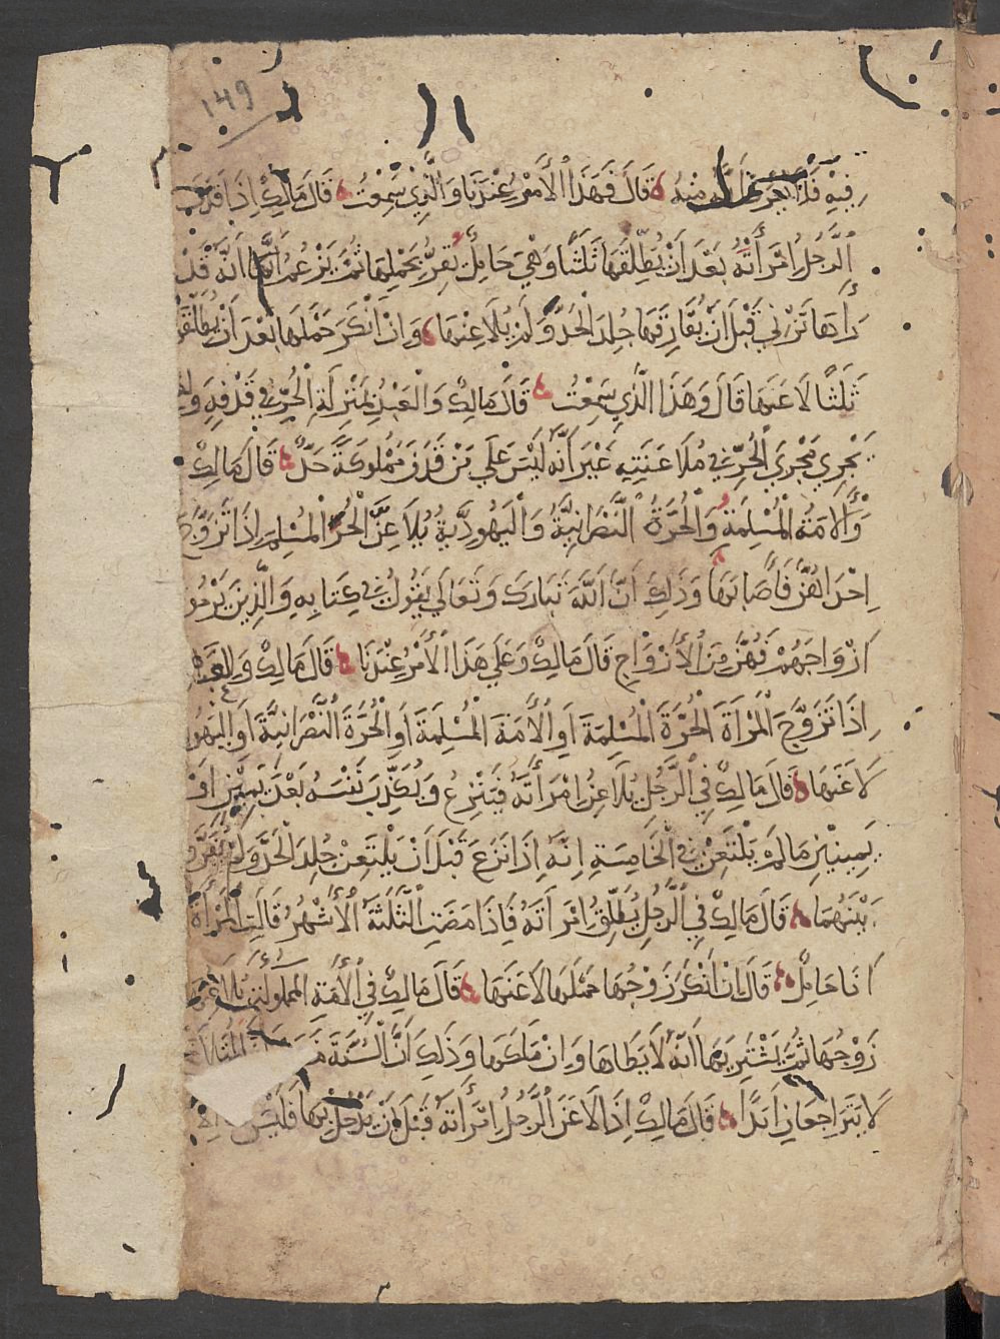 ١٤٩
فِيْهِ فَلَا يَجُوزُ مِنْهُ قَالَ فَهَذَا الْأَمْرُ عِنْدَنَا وَالَّذِي سَمِعْتُ قَالَ مَالِكٌ إِذَا قَذَفَ
الرَّجُلُ امْرَأَتَهُ بَعْدَ أَنْ يُطَلِّقَهَا ثَلَثًا وَهِيَ حَامِلٌ يُقِرُّ بِحَمْلِهَا ثُمَّ يَزْعُمُ أَنَّهُ قَدْ
رَأَهَا تَزْنِي قَبْلَ أَنْ يُفَارِقَهَا جُلِدَ الْحَدَّ وَلَمْ يُلَاعِنْهَا وَإِنْ أَنْكَرَ حَمْلَهَا بَعْدَ أَنْ يُطَلِّقَهَا
ثَلَثًا لَاعَنَهَا قَالَ وَهَذَا الَّذِي سَمِعْتُ قَالَ مَالِكٌ وَالْعَبْدُ بِمَنْزِلَةِ الْحُرِّ فِي قَذْفِهِ
يَجْرِي مَجْرِيَ الْحُرِّ فِي مُلَاعَنَتِهِ غَيْرَ أَنَّهُ لَيْسَ عَلَي مَنْ قَذَفَ مَمْلُوكَةً حَدٌّ قَالَ مَالِكٌ
وَالْأَمَةُ الْمُسْلِمَةُ وَالْحُرَّةُ النَّصْرَانِيَّةُ وَالْيَهُودِيَّةُ يُلَاعِنَّ الْحُرَّ الْمُسْلِمَ إِذَا تَزَوَّجَ
إِحْدَاهُنَّ فَأَصَابَهَا وَذَلِكَ أَنَّ اللَّهَ تَبَارَكَ وَتَعَالَي يَقُولُ فِي كِتَابِهِ وَالَّذِينَ يَرْمُونَ
أَزْوَاجَهُمْ فَهُنَّ مِنَ الْأَزْوَاجِ قَالَ مَالِكٌ وَعَلَي هَذَا الْأَمْرُ عِنْدَنَا قَالَ مَالِكٌ وَالْعَبْدُ
إِذَا تَزَوَّجَ الْمَرْأَةَ الْحُرَّةَ الْمُسْلِمَةَ أَوِ الْأَمَةَ الْمُسْلِمَةَ أَوِ الْحُرَّةَ النَّصْرَانِيَّةَ أَوِ الْيَهُودِيَّةَ
لَاعَنَهَا قَالَ مَالِكٌ فِي الرَّجُلِ يُلَاعِنُ امْرَأَتَهُ فَيَنْزِعُ وَيُكَذِّبُ نَفْسَهُ بَعْدَ يَمِيْنٍ أَوْ
يَمِينَيْنِ مَا لَمْ يَلْتَعِنْ فِي الْخَامِسَةِ إِنَّهُ إِذَا نَزَعَ قَبْلَ أَنْ يَلْتَعِنَ جُلِدَ الْحَدَّ وَلَمْ يُفَرَّقْ
بَيْنَهُمَا قَالَ مَالِكٌ فِي الرَّجُلِ يُطَلِّقُ امْرَأَتَهُ فَإِذَا مَضَتِ الثَّلَثَةُ الْأَشْهُرُ قَالَتِ الْمَرْأَةُ
أَنَا حَامِلٌ قَالَ إِنْ أَنْكَرَ زَوْجُهَا حَمْلَهَا لَاعَنَهَا قَالَ مَالِكٌ فِي الْأَمَةِ الْمَمْلُوكَةِ يُلَاعِنُهَا
زَوْجُهَا ثُمَّ يَشْتَرِيهَا أَنَّهُ لَا يَطَاهَا وَإِنْ مَلَكَهَا وَذَلِكَ أَنَّ السُّنَّةَ
لَا يَتَرَاجَعَانِ أَبَدًا قَالَ مَالِكٌ إِذَا لَاعَنَ الرَّجُلُ امْرَأَتَهُ قَبْلَ أَنْ يَدْخُلَ بِهَا فَلَيْسَ